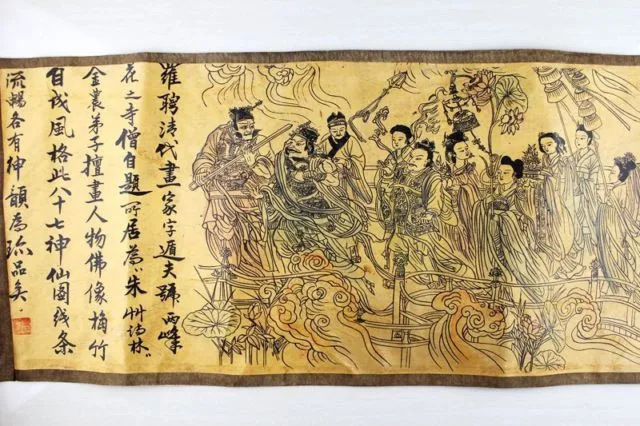 羅聘清代畫家字遁夫號两峰
花之寺僧自題所居為“朱艸詩林”
金農弟子擅畫人物佛像梅竹
自成風格此八十七神仙圖线条
流暢各有神韻為珍品矣.